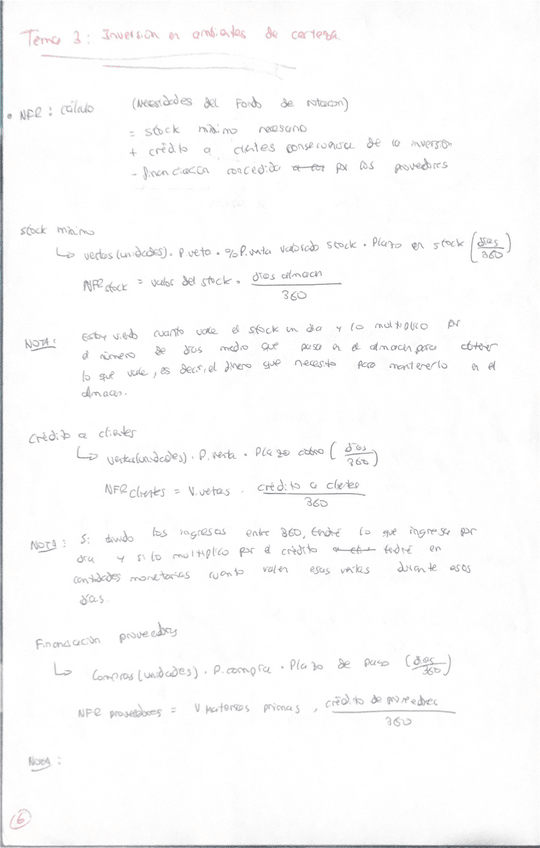 Tema 3: Inversión en ambientes de certeza
• NFR: cálculo (Necesidades del Fondo de rotación)
= stock mínimo necesario
+ crédito a clientes consecuencia de la inversión
- financiación concedida por los proveedores
stock mínimo
↳ ventas (unidades) · P. veta · % P. venta valorado stock · Plazo en stock (días/360)
NFR stock = valor del stock · días almacen/360
NOTA: Estoy viendo cuanto vale el stock un dia y lo multiplico por
el número de días medio que pasa en el almacen para obtener
lo que vale, es decir, el dinero que necesito para mantenerlo en el
almacen.
Crédito a clientes
↳ ventas (unidades) · P. venta · Plazo cobro (días/360)
NFR clientes = V. vetas · crédito a clietes/360
NOTA: Si divido los ingresos entre 360, tendré lo que ingreso por
día y si lo multiplico por el crédito tedré en
cantidades monetarias cuanto valen esas ventas durante esos
días.
Financiación proveedores
↳ Compras (unidades) · P. compra · Plazo de pago (días/360)
NFR proveedores = V materias primas · crédito de proveedores/360
NOTA:
6